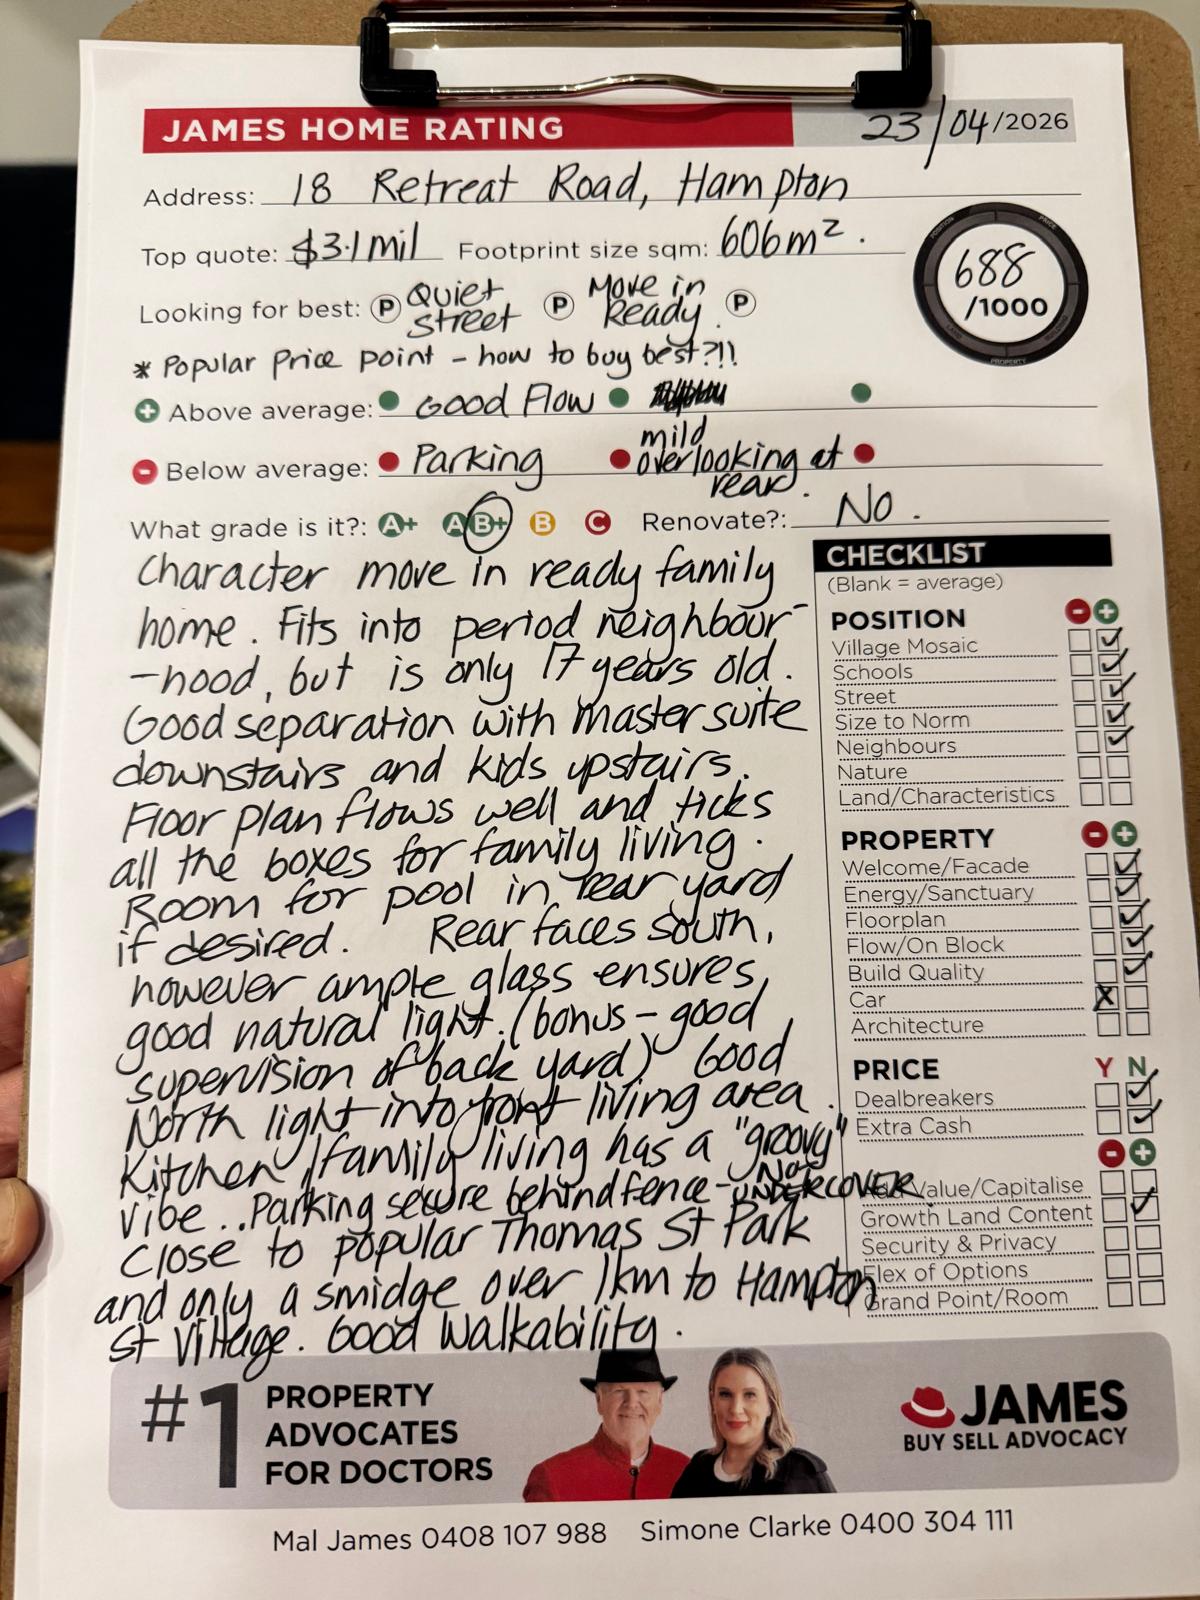 JAMES HOME RATING 23/04/2026
Address: 18 Retreat Road, Hampton
Top quote: $3.1 mil Footprint size sqm: 606m².
688
/1000
POSITION PRICE LAND BUILDING PROPERTY
Looking for best: P Quiet Street P Move in Ready. P
* Popular Price point - how to buy best?!!
+ Above average: Good Flow
- Below average: Parking mild overlooking at rear.
What grade is it?: A+ A B+ B C Renovate?: No.
Character move in ready family
home. Fits into period neighbour-
-hood, but is only 17 years old.
Good separation with master suite
downstairs and kids upstairs.
Floor plan flows well and ticks
all the boxes for family living.
Room for pool in rear yard
if desired. Rear faces south,
however ample glass ensures
good natural light. (bonus - good
supervision of back yard) Good
North light into front living area.
Kitchen/family living has a "groovy"
vibe.. Parking secure behind fence - Not UNDERCOVER.
Close to popular Thomas St Park
and only a smidge over 1km to Hampton
St Village. Good Walkability.
CHECKLIST
(Blank = average)
POSITION - +
Village Mosaic ✓
Schools ✓
Street ✓
Size to Norm ✓
Neighbours ✓
Nature
Land/Characteristics
PROPERTY - +
Welcome/Facade ✓
Energy/Sanctuary ✓
Floorplan ✓
Flow/On Block ✓
Build Quality ✓
Car X
Architecture
PRICE Y N
Dealbreakers ✓
Extra Cash ✓
- +
Add Value/Capitalise
Growth Land Content ✓
Security & Privacy
Flex of Options
Grand Point/Room
#1 PROPERTY
ADVOCATES
FOR DOCTORS
JAMES
BUY SELL ADVOCACY
Mal James 0408 107 988 Simone Clarke 0400 304 111